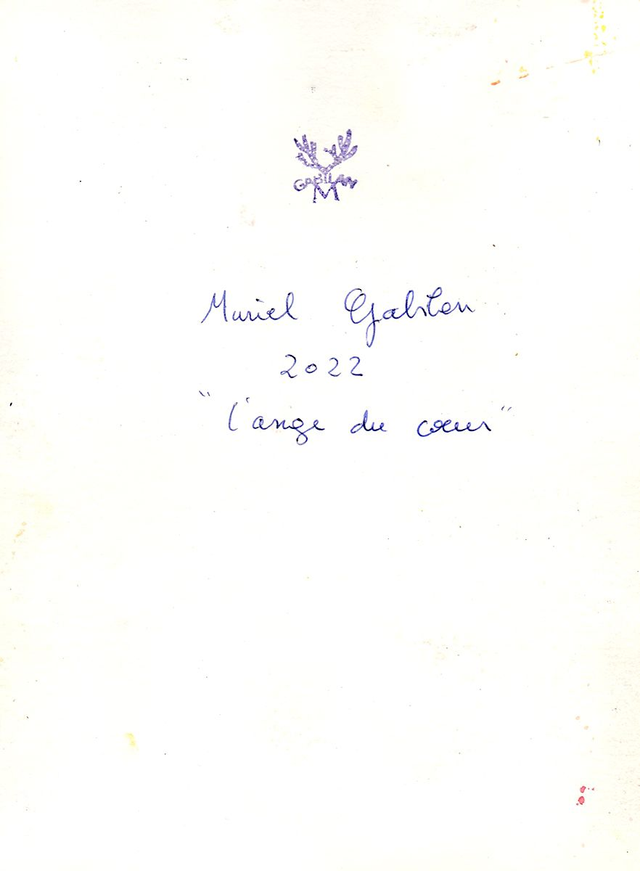 GABILAN
M
Muriel Gabilan
2022
"l'ange du cœur"